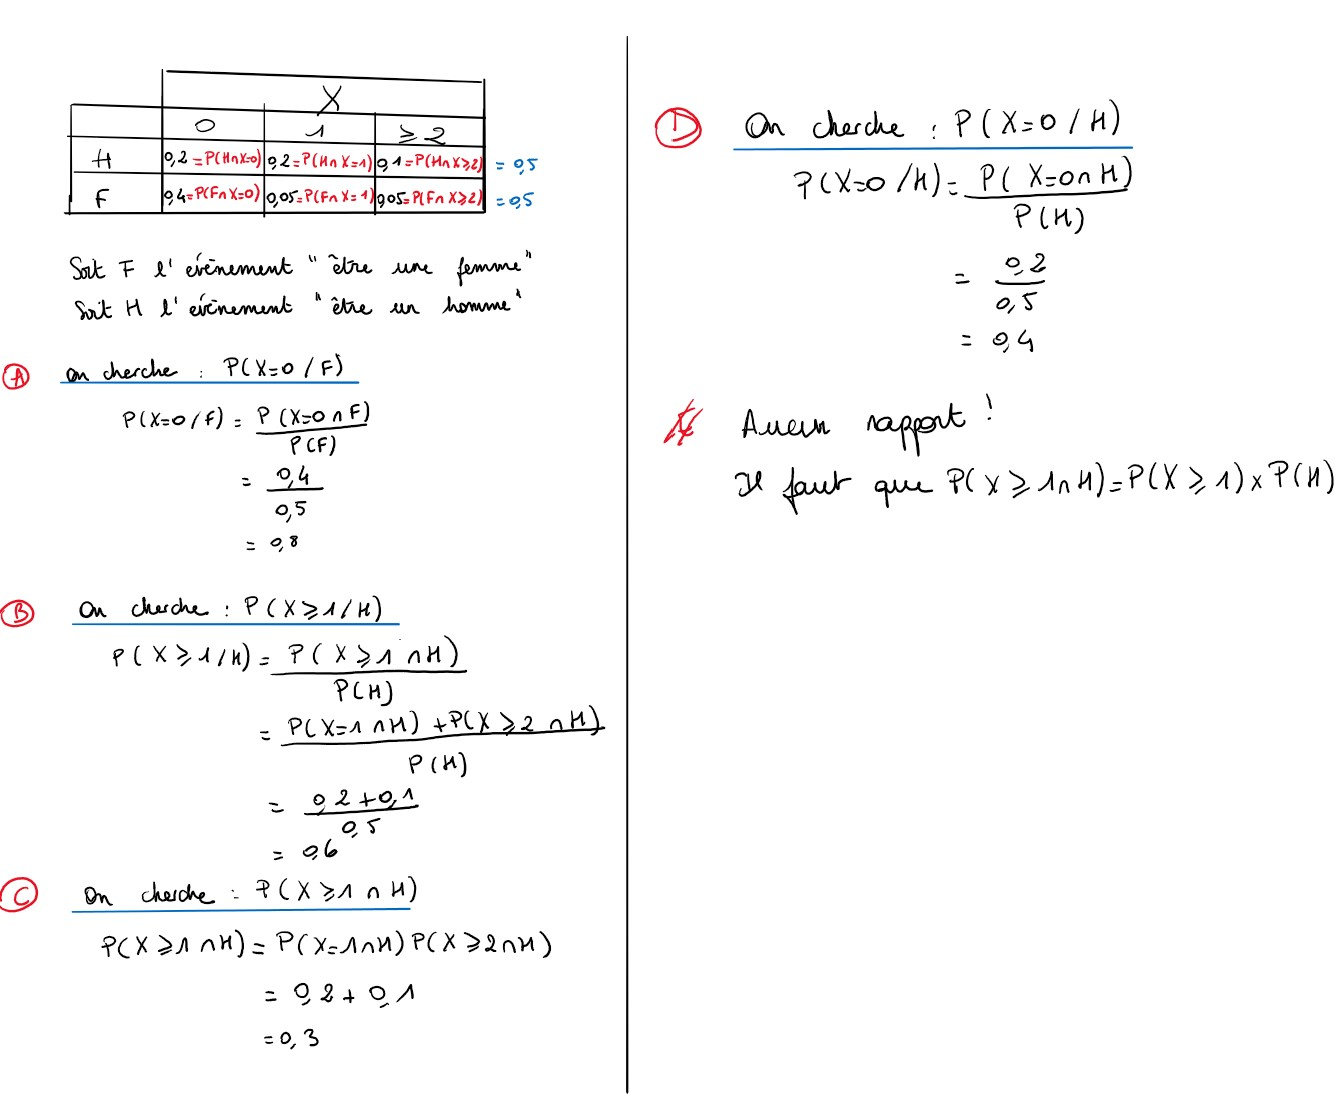 X
0 1 ≥2
H 0,2=P(H∩X=0) 0,2=P(H∩X=1) 0,1=P(H∩X≥2) = 0,5
F 0,4=P(F∩X=0) 0,05=P(F∩X=1) 0,05=P(F∩X≥2) = 0,5
Soit F l'évènement "être une femme"
Soit H l'évènement "être un homme"
A On cherche : P(X=0/F)
P(X=0/F) = P(X=0∩F)
P(F)
= 0,4
0,5
= 0,8
B On cherche : P(X≥1/H)
P(X≥1/H) = P(X≥1∩H)
P(H)
= P(X=1∩H) + P(X≥2∩H)
P(H)
= 0,2+0,1
0,5
= 0,6
C On cherche : P(X≥1∩H)
P(X≥1∩H) = P(X=1∩H) P(X≥2∩H)
= 0,2 + 0,1
= 0,3
D On cherche : P(X=0/H)
P(X=0/H) = P(X=0∩H)
P(H)
= 0,2
0,5
= 0,4
Aucun rapport !
Il faut que P(X≥1∩H)=P(X≥1)×P(H)